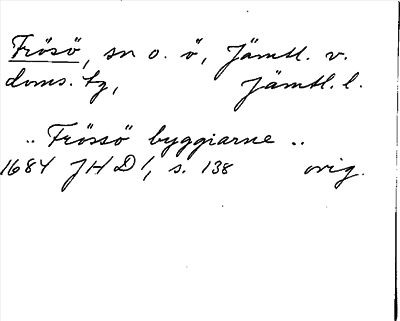 Frösö, sn o. ö, Jämtl. v.
doms. tg, Jämtl. l.
.. Frössö byggiarne ..
1684 JHD 1, s. 138 orig.